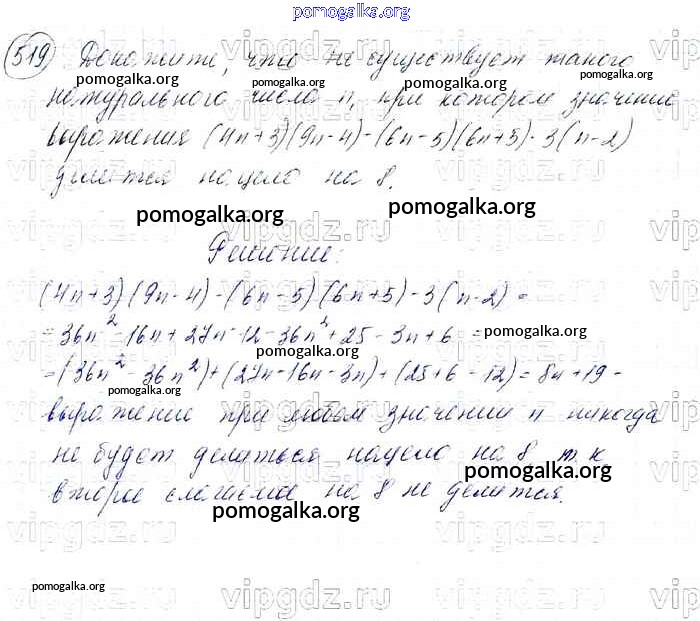 pomogalka.org
519 Докажите, что не существует такого
pomogalka.org pomogalka.org
натурального числа n, при котором значение
выражения (4n+3)(9n-4)-(6n-5)(6n+5)-3(n-2)
делится нацело на 8.
pomogalka.org pomogalka.org
Решение:
(4n+3)(9n-4)-(6n-5)(6n+5)-3(n-2)=
=36n²-16n+27n-12-36n²+25-3n+6=
pomogalka.org pomogalka.org
=(36n²-36n²)+(27n-16n-3n)+(25+6-12)=8n+19-
pomogalka.org pomogalka.org
выражение при любом значении n никогда
не будет делиться нацело на 8 т.к
pomogalka.org
второе слагаемое на 8 не делится.
pomogalka.org
vipgdz.ru vipgdz.ru vipgdz.ru
pomogalka.org
vipgdz.ru vipgdz.ru